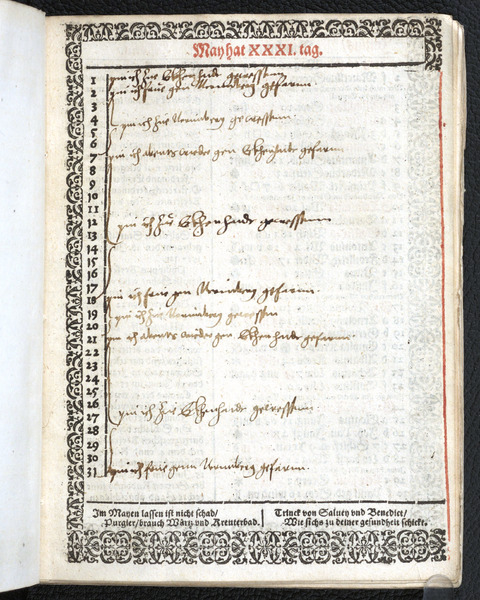 May hat XXXI. tag.
1 pin ich zu Eschenhaid gewessenn
2 pin ich frue gen Nürmberg gefarnn
3
4
5 pin ich zu Nürmberg gewessenn
6
7 pin ich abents wider gen Eschenhaid gefarnn
8
9
10
11
12 pin ich zu Eschenhaide gewessenn
13
14
15
16
17
18 pin ich frue gen Nürmberg gefarnn
19 pin ich zu Nürmberg gewessen
20
21 pin ich abents wider gen Eschenhaide gefarnn
22
23
24
25
26
27 pin ich zu Eschenhaide gewessenn
28
29
30
31 pin ich frue genn Nürmberg gefarnn
Im Mayen lassen ist nicht schad/
Purgier/brauch Würtz vnd Kreuterbad.
Trinck von Saluey vnd Benedict/
Wie sichs zu deiner gesundheit schickt.